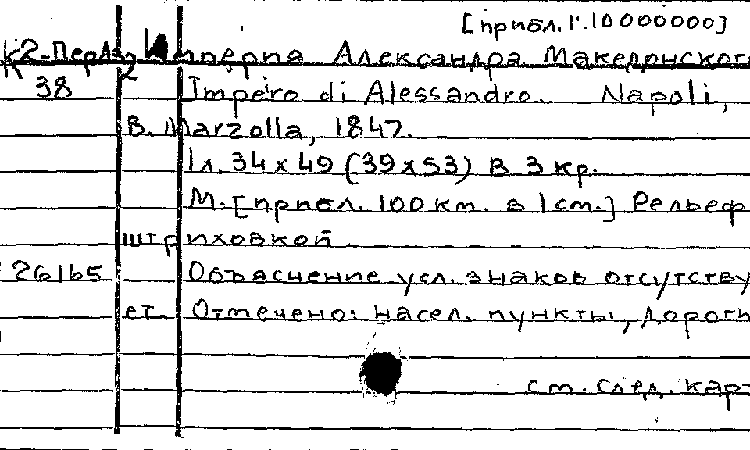 [прибл. 1:10000000]
К2-ПерАз Империя Александра Македонского
38 Impero di Alessandro. Napoli,
B. Marzolla, 1847.
1 л. 34 x 49 (39 x 53) в 3 кр.
М. [прибл. 100 км. в 1 см.] Рельеф
штриховкой
26165 Объяснение усл. знаков отсутству
ет. Отмечено: насел. пункты, дороги
см. след. карт